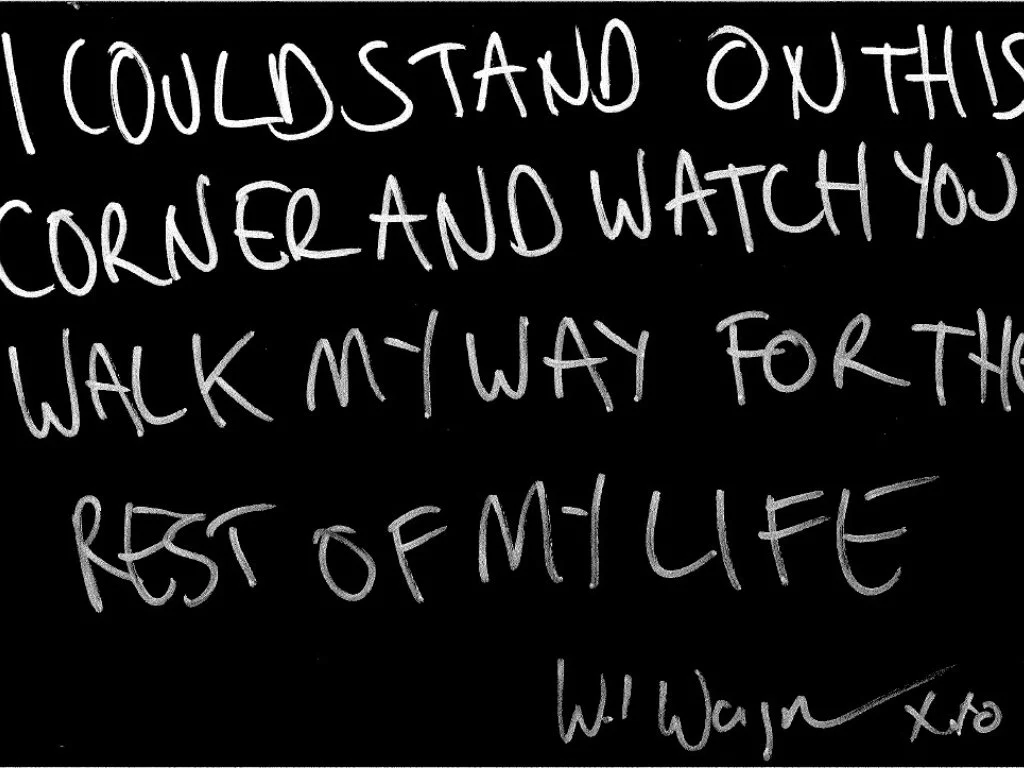 I COULD STAND ON THIS
CORNER AND WATCH YOU
WALK MY WAY FOR THE
REST OF MY LIFE
Wil Wagner xxo